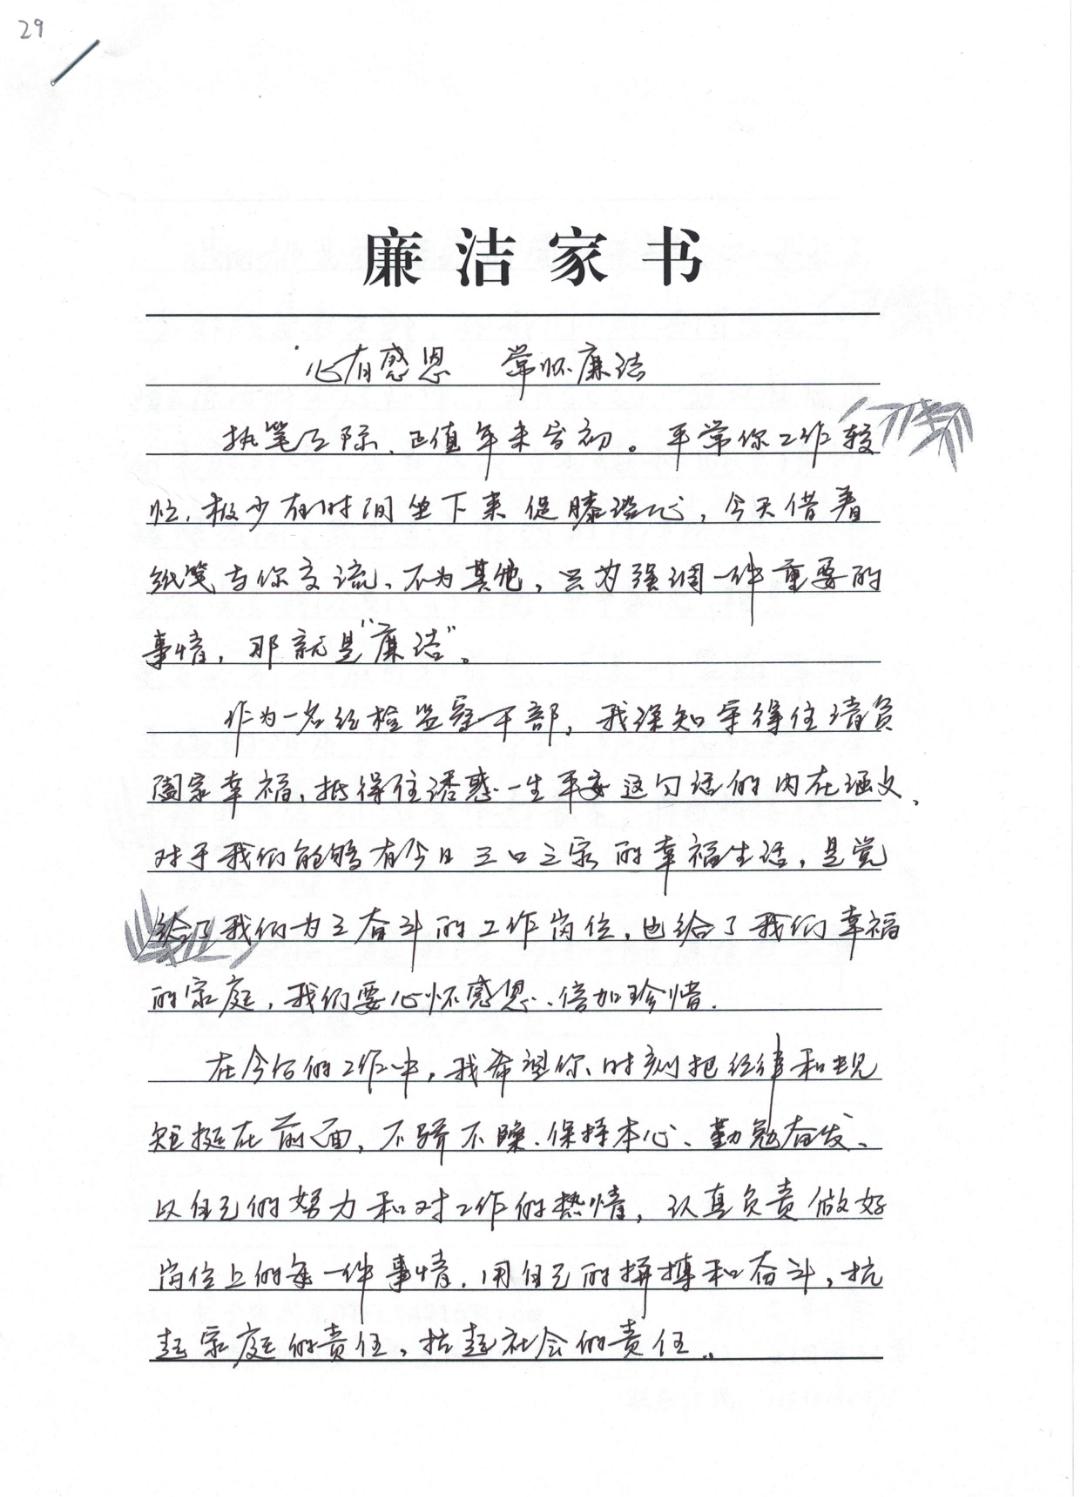 29
廉洁家书
心有感恩 常怀廉洁
执笔之际、正值年末岁初。平常你工作较
忙、极少有时间坐下来促膝谈心，今天借着
纸笔与你交流、不为其他，只为强调一件重要的
事情，那就是"廉洁"。
作为一名纪检监察干部，我深知守得住清贫
阖家幸福，抵得住诱惑一生平安这句话的内在涵义、
对于我们能够有今日三口之家的幸福生活，是党
给了我们为之奋斗的工作岗位，也给了我们幸福
的家庭，我们要心怀感恩、倍加珍惜.
在今后的工作中，我希望你、时刻把纪律和规
矩挺在前面，不骄不躁、保持本心、勤勉奋发、
以自己的努力和对工作的热情，认真负责做好
岗位上的每一件事情.用自己的拼搏和奋斗，抗
起家庭的责任，抗起社会的责任。